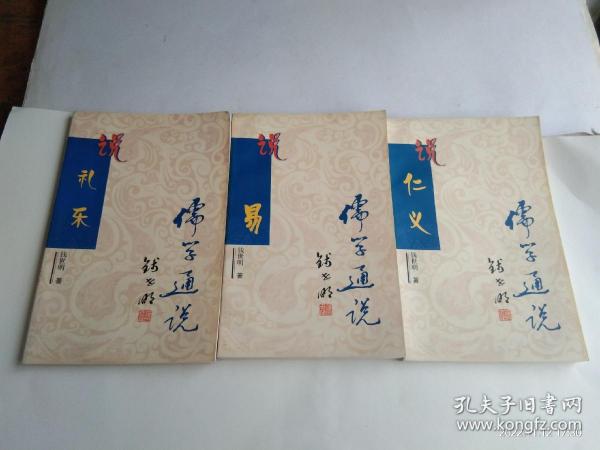 说
礼乐
儒学通说
钱世明
钱世明 著
说
易
儒学通说
钱世明
钱世明 著
说
仁义
儒学通说
钱世明
钱世明 著
孔夫子旧书网
www.kongfz.com